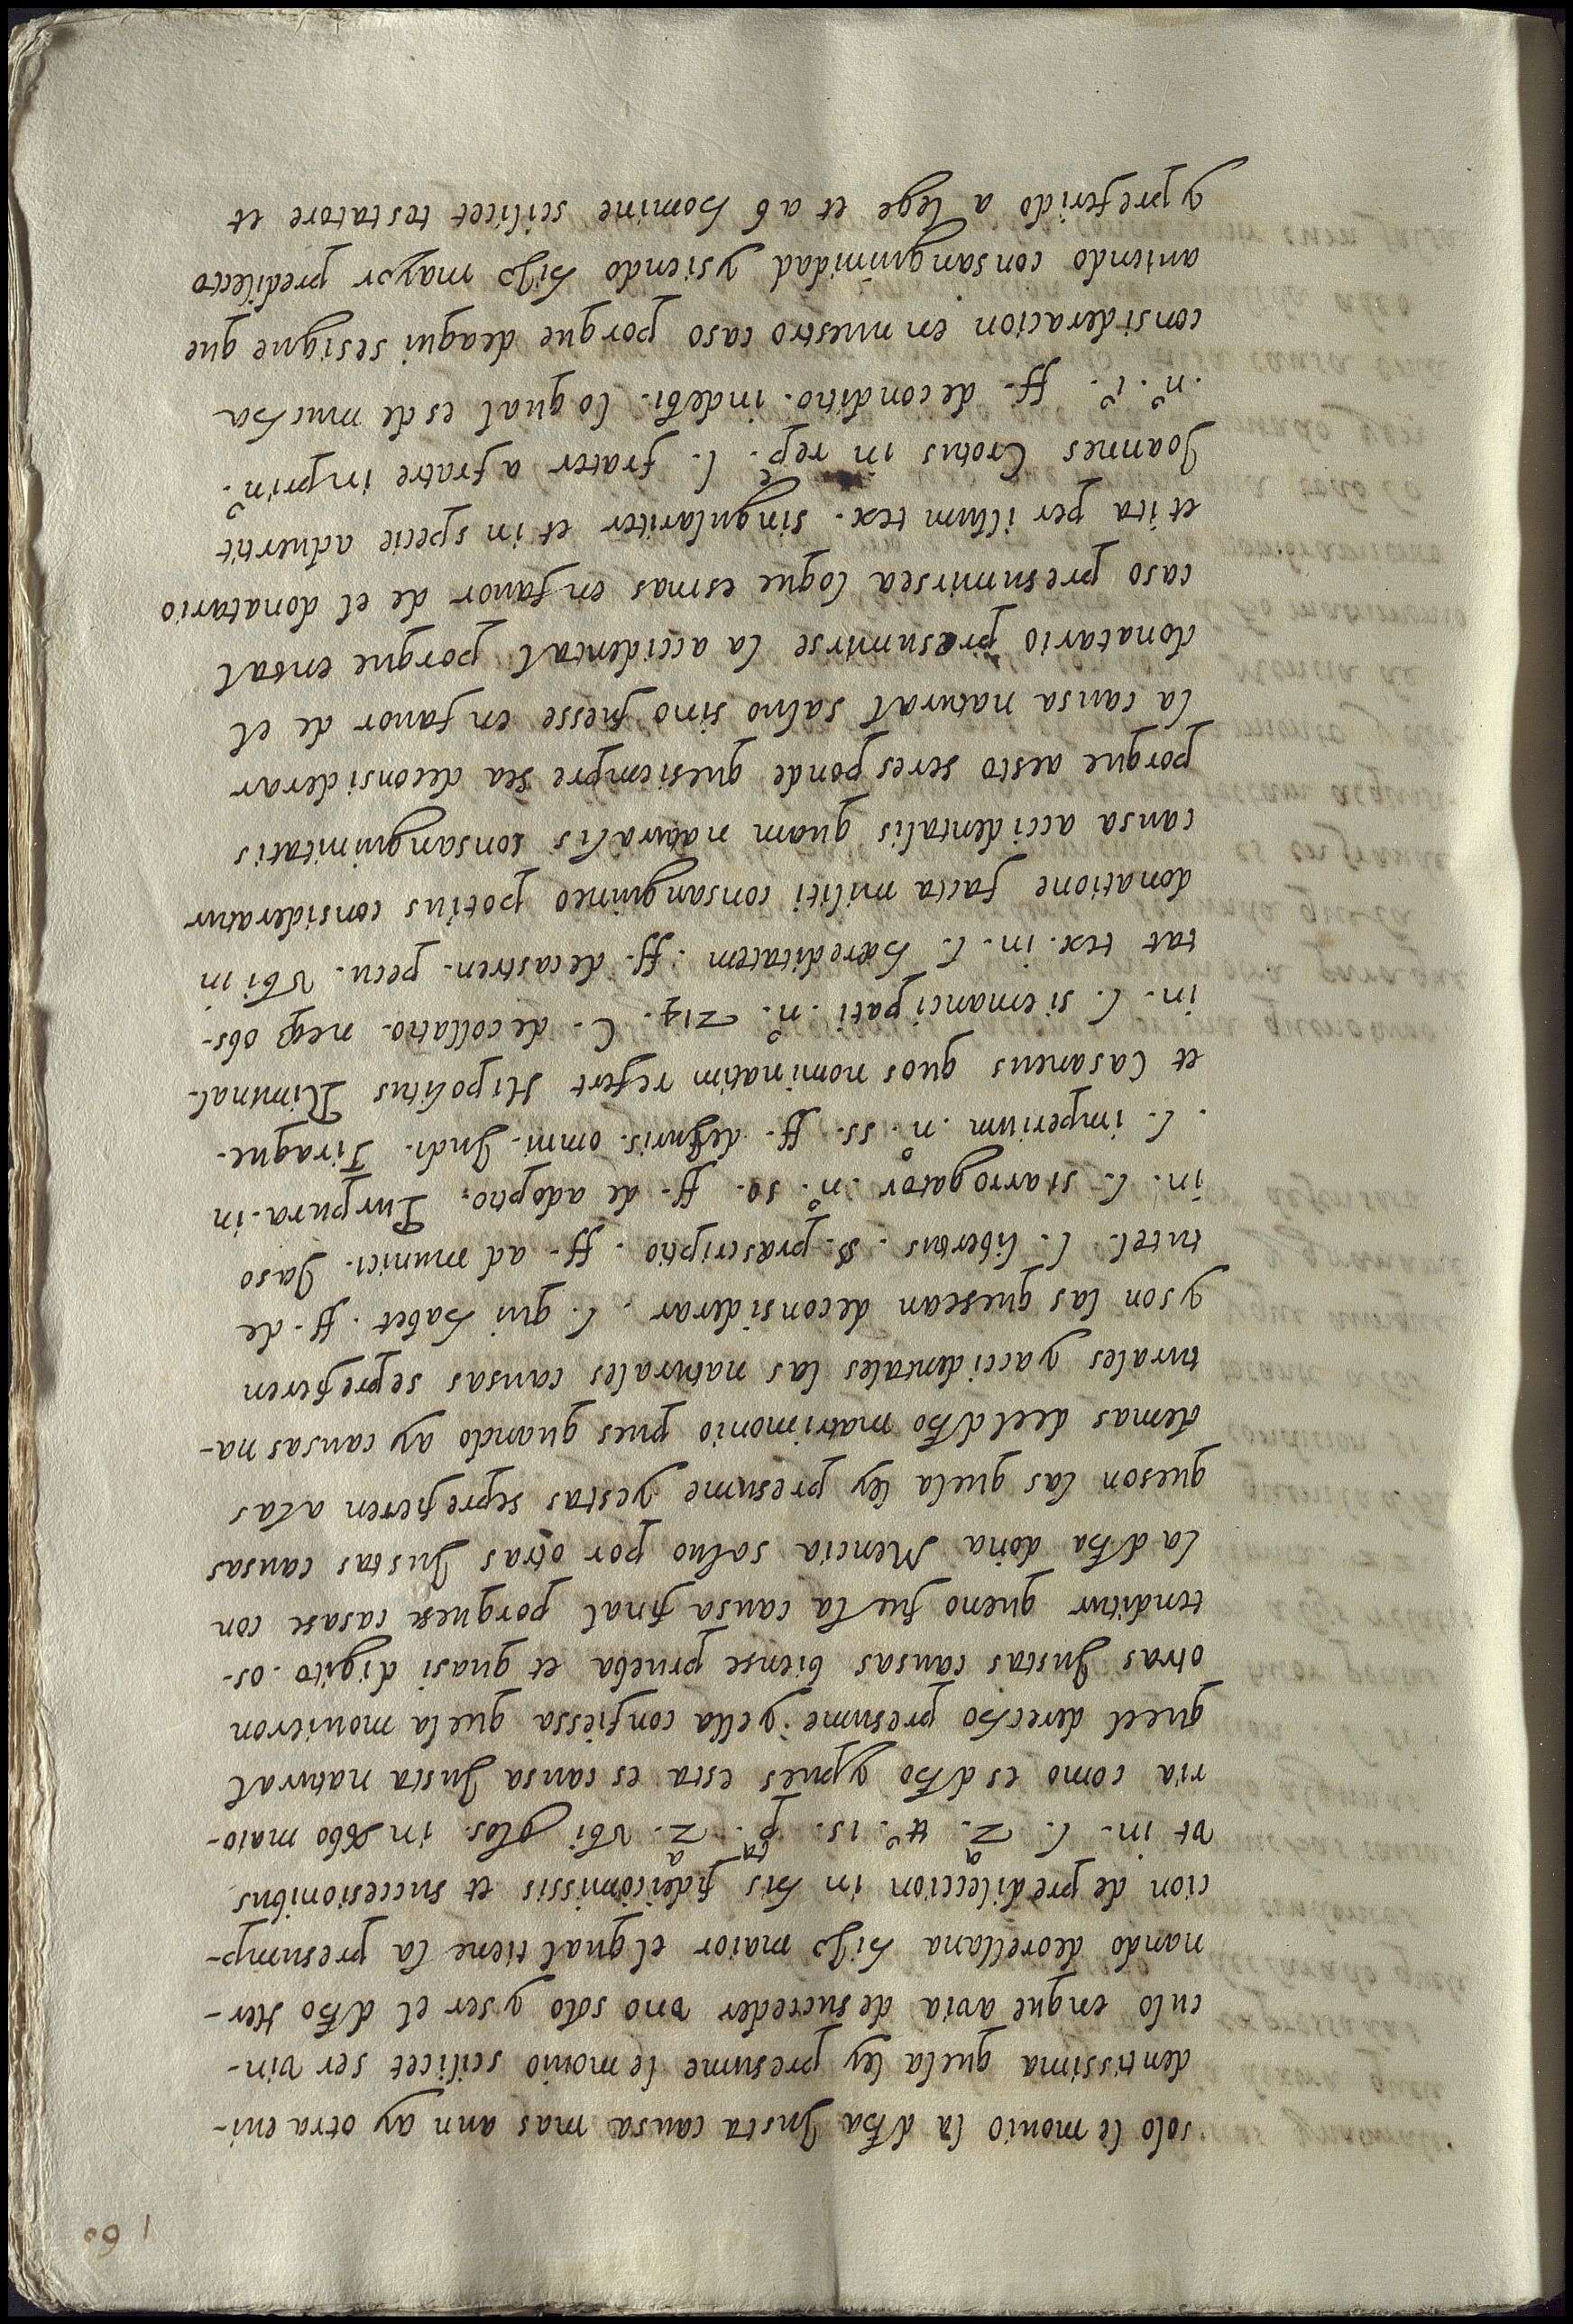 160
solo le mouio la dha Justa causa mas aun ay otra eui-
dentissima quela ley presume le mouio scilicet ser vin-
culo enque auia desuceder vno solo y ser el dho Her-
nando deorellana hijo maior el qual tiene la presump-
cion de predileccion in his fideicomissis et succesionibus
vt in. l. 2.ª tt.º 15. p.ta 2.ª vbi glos. in verbo maio-
ria como es dho ypues esta es causa Justa natural
queel derecho presume yella confiessa quela mouieron
otras Justas causas biense prueba et quasi digito. os-
tenditur queno fue la causa final porquese casase con
la dha doña Mencia saluo por otras Justas causas
queson las quela ley presume yestas seprefieren alas
demas deel dho matrimonio pues quando ay causas na-
turales yaccidentales las naturales causas seprefieren
y son las quesean deconsiderar. l. qui habet. ff. de
tutel. l. libertus. §. præscriptio. ff. ad munici. Jaso
in. l. si arrogator. n.º 10. ff. de adoptio. Purpura. in
. l. imperium. n.º 55. ff. deJuris. omni. Judi. Tiraque.
et Casaneus quos nominatim refert Hipolitus Riminal.
in. l. si emancipati. n.º 214. C. de collatio. neq3 obs-
tat tex. in. l. hæreditatem. ff. decastren. pecu. vbi in
donatione facta militi consanguineo potius consideratur
causa accidentalis quam naturalis consanguinitatis
porque aesto seresponde quesiempre sea deconsiderar
la causa natural saluo sino fuesse enfauor de el
donatario presumirse la accidental porque ental
caso presumirsea loque esmas enfauor de el donatario
et ita per illum tex. singulariter et in specie aduertit
Joannes Crotus in rep.e l. frater a fratre inprin.º
. n.º 1.º ff. deconditio. indebi. lo qual es de mucha
consideracion en nuestro caso porque deaqui sesigue que
auiendo consanguinidad ysiendo hijo mayor predilecto
ypreferido a lege et ab homine scilicet testatore et